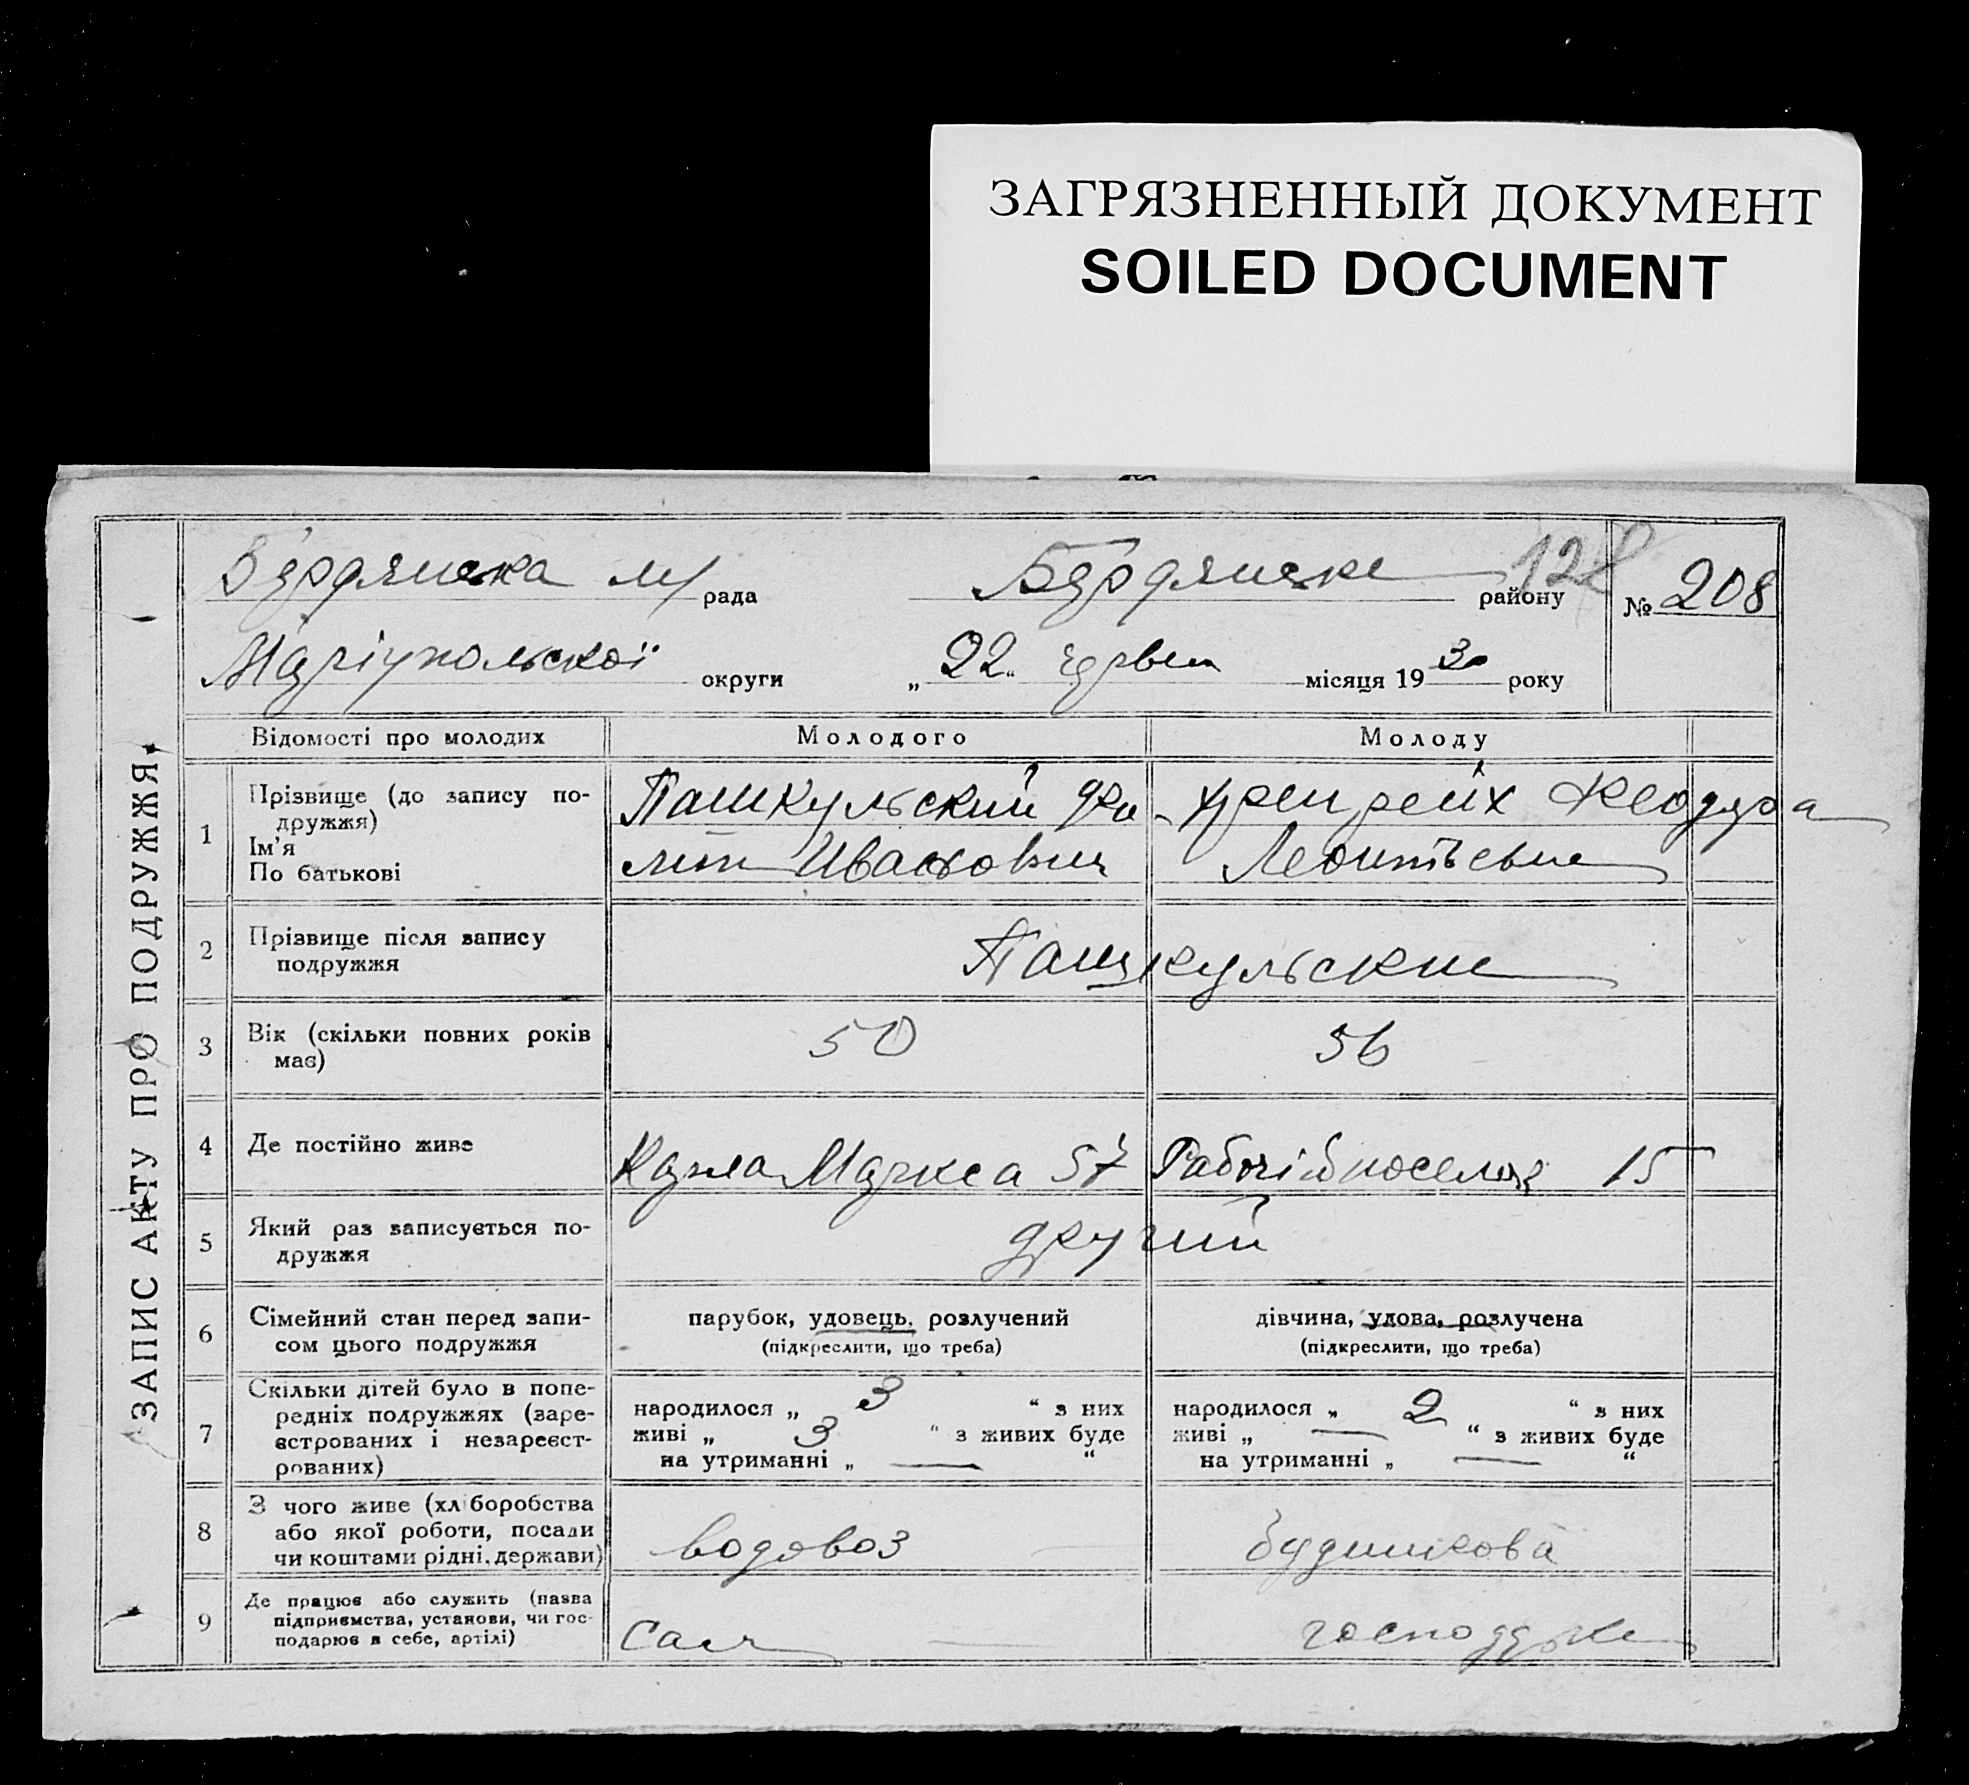 ЗАГРЯЗНЕННЫЙ ДОКУМЕНТ
SOILED DOCUMENT
ЗАПИС АКТУ ПРО ПОДРУЖЖЯ
Бердянска м/ рада Бердянске району 128 № 208
Маріупольскої округи „ 22 “ червня місяця 19 30 року
Відомості про молодих Молодого Молоду
1 Прізвище (до запису подружжя) Пашкульский
Ім'я
По батькові Иванович Леонтъевна
2 Прізвище після запису Пашкульские
подружжя
3 Вік (скільки повних років 50 56
має)
4 Де постійно живе Карла Маркса 57 Рабочій поселок 15
5 Який раз записується по- другий
дружжя
6 Сімейний стан перед запи- парубок, удовець, розлучений дівчина, удова, розлучена
сом цього подружжя (підкреслити, що треба) (підкреслити, що треба)
7 Скільки дітей було в попе-
редніх подружжях (заре- народилося „ 3 “ з них народилося „ 2 “ з них
єстрованих і незареєст- живі „ 3 “ з живих буде живі „ — “ з живих буде
рованих) на утриманні „ — “ на утриманні „ — “
8 З чого живе (хліборобства
або якої роботи, посади водовоз будинкова
чи коштами рідні, держави)
9 Де працює або служить (назва
підприємства, установи, чи гос-
подарює в себе, артілі) сам